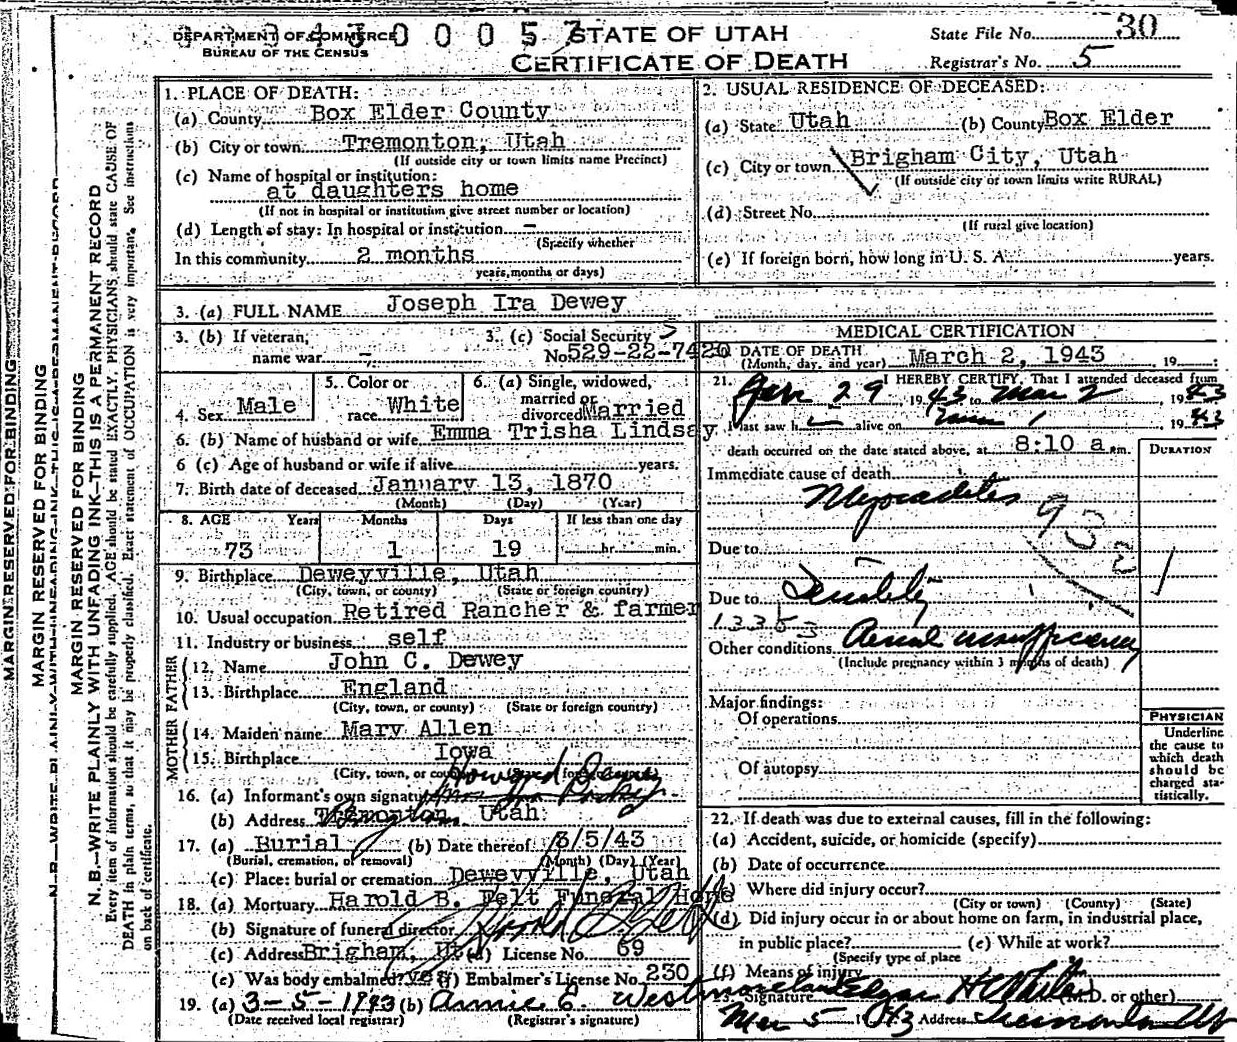 3 4 3 0 0 0 5 7
DEPARTMENT OF COMMERCE
BUREAU OF THE CENSUS
STATE OF UTAH
CERTIFICATE OF DEATH
State File No. 30
Registrar's No. 5
MARGIN RESERVED FOR BINDING
MARGIN RESERVED FOR BINDING
MARGIN RESERVED FOR BINDING
N. B.—WRITE PLAINLY WITH UNFADING INK—THIS IS A PERMANENT RECORD
Every item of information should be carefully supplied. AGE should be stated EXACTLY. PHYSICIANS should state CAUSE OF
DEATH in plain terms, so that it may be properly classified. Exact statement of OCCUPATION is very important. See instructions
on back of certificate.
1. PLACE OF DEATH:
(a) County Box Elder County
(b) City or town Tremonton, Utah
(If outside city or town limits name Precinct)
(c) Name of hospital or institution:
at daughters home
(If not in hospital or institution give street number or location)
(d) Length of stay: In hospital or institution -
(Specify whether
In this community 2 months
years, months or days)
2. USUAL RESIDENCE OF DECEASED:
(a) State Utah (b) County Box Elder
(c) City or town Brigham City, Utah
(If outside city or town limits write RURAL)
(d) Street No.
(If rural give location)
(e) If foreign born, how long in U. S. A. years.
3. (a) FULL NAME Joseph Ira Dewey
3. (b) If veteran, name war -
3. (c) Social Security No. 529-22-7420
4. Sex Male
5. Color or race White
6. (a) Single, widowed, married or divorced Married
6. (b) Name of husband or wife Emma Trisha Lindsay
6 (c) Age of husband or wife if alive years.
7. Birth date of deceased January 13, 1870
(Month) (Day) (Year)
8. AGE Years Months Days If less than one day
73 1 19 hr. min.
9. Birthplace Deweyville, Utah
(City, town, or county) (State or foreign country)
10. Usual occupation Retired Rancher & farmer
11. Industry or business self
FATHER
12. Name John C. Dewey
13. Birthplace England
(City, town, or county) (State or foreign country)
MOTHER
14. Maiden name Mary Allen
15. Birthplace Iowa
(City, town, or county)
16. (a) Informant's own signature Howard Dewey
(b) Address Tremonton, Utah
17. (a) Burial (b) Date thereof 3/5/43
(Burial, cremation, or removal) (Month) (Day) (Year)
(c) Place: burial or cremation Deweyville, Utah
18. (a) Mortuary Harold B. Felt Funeral Home
(b) Signature of funeral director Harold B Felt
(c) Address Brigham, Ut (d) License No. 69
(e) Was body embalmed? yes (f) Embalmer's License No. 230
19. (a) 3-5-1943 (b) Annie E. Westmoreland
(Date received local registrar) (Registrar's signature)
MEDICAL CERTIFICATION
20. DATE OF DEATH
(Month, day, and year) March 2, 1943, 19
21. I HEREBY CERTIFY, That I attended deceased from
Jan 29, 1943 to Mar 2, 1943
I last saw h alive on 1, 1943
death occurred on the date stated above, at 8:10 a m.
DURATION
Immediate cause of death
Myocarditis
932
Due to
Due to Senility
Other conditions
(Include pregnancy within 3 months of death)
Major findings:
Of operations
Of autopsy
PHYSICIAN
Underline
the cause to
which death
should be
charged sta-
tistically.
22. If death was due to external causes, fill in the following:
(a) Accident, suicide, or homicide (specify)
(b) Date of occurrence
(c) Where did injury occur?
(City or town) (County) (State)
(d) Did injury occur in or about home on farm, in industrial place,
in public place? (e) While at work?
(Specify type of place
(f) Means of injury
23. Signature (M.D. or other)
Mar 5 1943 Address Tremonton Ut